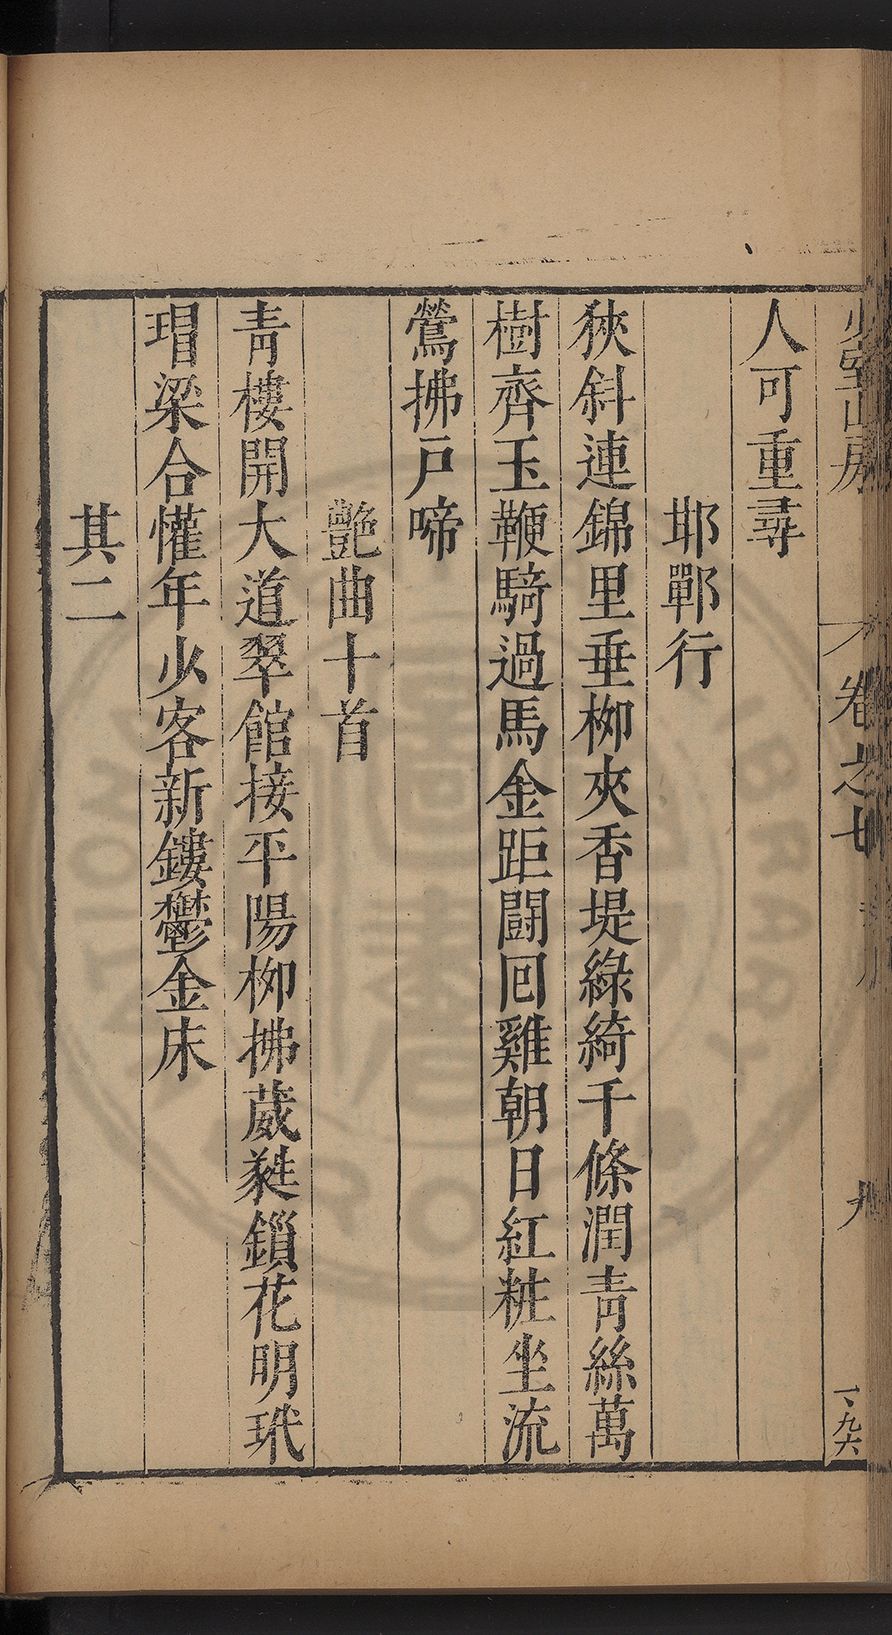 少室山房
卷之七
九
一、九六
人可重尋
邯鄲行
狹斜連錦里垂栁夾香堤綠綺千條潤青絲萬
樹齊玉鞭騎過馬金距闘回雞朝日紅粧坐流
鶯拂戸啼
艷曲十首
青樓開大道翠館接平陽栁拂葳蕤鎖花明玳
瑁梁合懽年少客新鏤鬱金床
其二